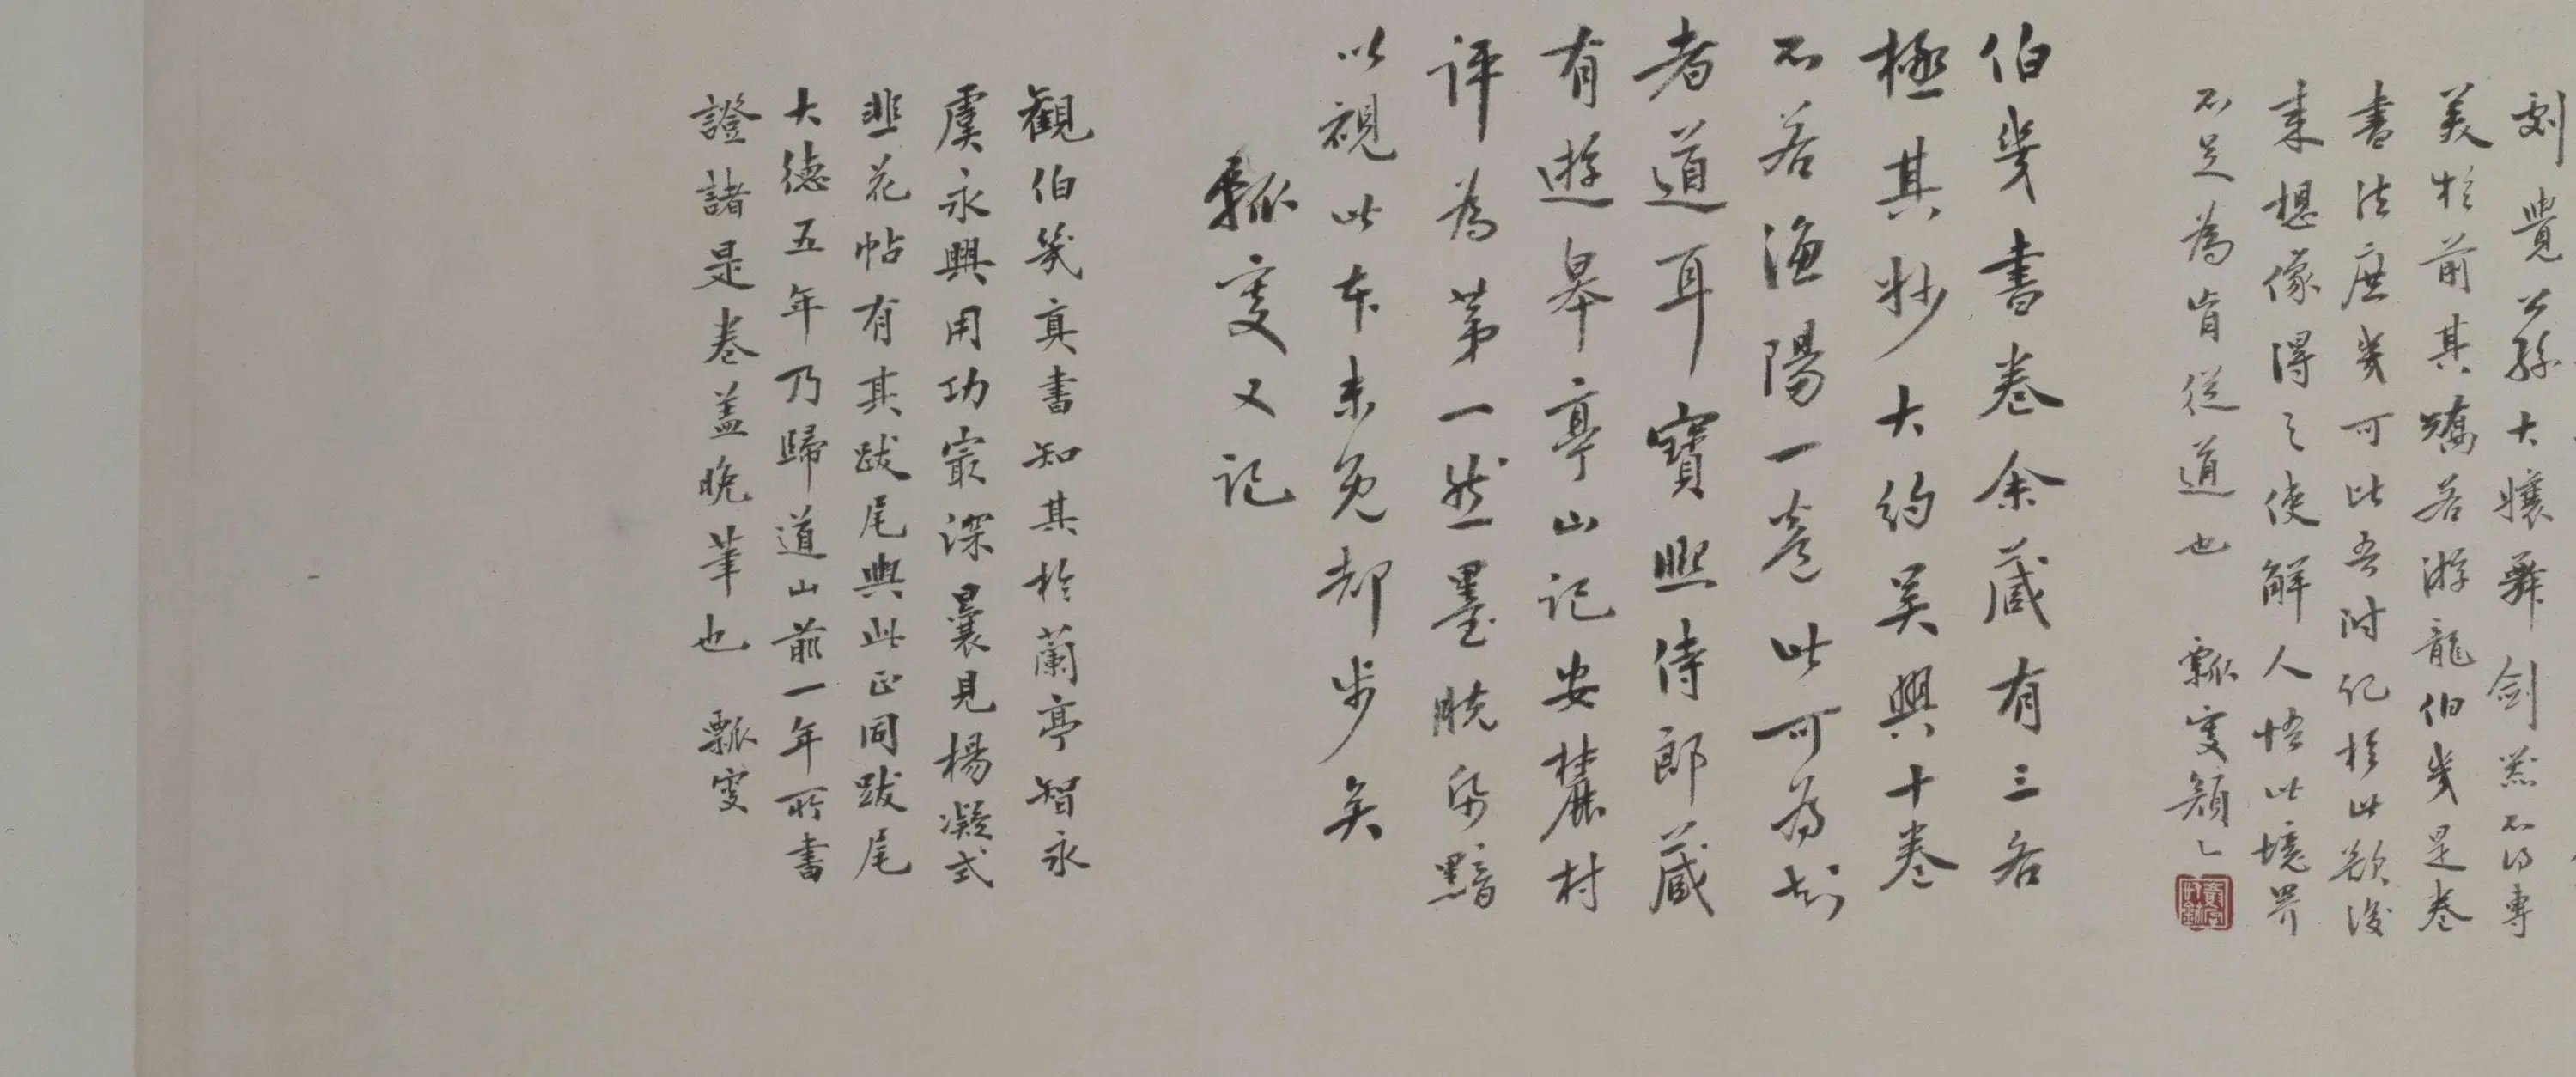 劍覺公孫大孃舞劍器不得專
美於前其矯若游龍伯幾是卷
書法庶幾可比吾附記於此欲後
來想像得之使解人悟此境界
不足為肯從道也 瓢叟題
伯幾書卷余藏有三各
極其妙大約吳興十卷
不若漁陽一卷此可為知
者道耳寶熙侍郎藏
有遊皋亭山記安麓村
評為第一然墨脫帋黯
以視此本未免却步矣
瓢叟又記
觀伯幾真書知其於蘭亭智永
虞永興用功最深曩見楊凝式
韭花帖有其跋尾與此正同跋尾
大德五年乃歸道山前一年所書
證諸是卷蓋晚筆也 瓢叟